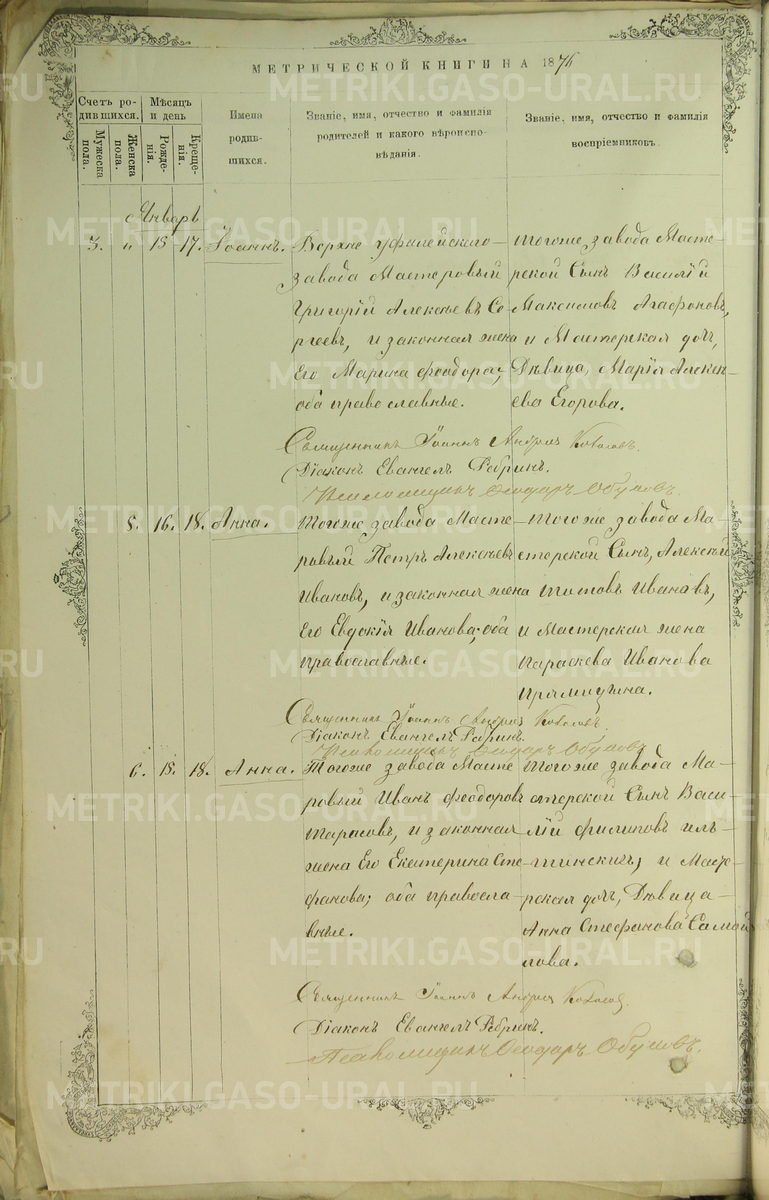 МЕТРИЧЕСКОЙ КНИГИ НА 1876
Счетъ родившихся.
Мужеска пола.
Женска пола.
Мѣсяцъ и день
Рожденія.
Крещенія.
Имена родившихся.
Званіе, имя, отчество и фамилія
родителей и какого вѣроиспо-
вѣданія.
Званіе, имя, отчество и фамилія
воспріемниковъ.
Январь
3. " 15 17. Іоаннъ.
Верхне уфалейскаго
завода Мастеровый
Григорій Алексѣевъ Се-
ргеевъ, и законная жена
Его Марина Феодорова;
оба православные.
тогоже завода Масте-
рской Сынъ Василій
Максимовъ Агафоновъ,
и Мастерская дочь,
Дѣвица, Марія Алексѣ-
ева Егорова.
Священникъ Іоаннъ
Діаконъ Евангелъ Ребринъ.
Псаломщикъ Феодоръ Обуховъ
5. 16. 18. Анна.
Тогоже завода Масте-
ровый Петръ Алексѣевъ
Ивановъ, и законная жена
Его Евдокія Иванова; оба
православные.
Тогоже завода Ма-
стерской Сынъ, Алексѣй
Титовъ Ивановъ,
и Мастерская жена
Параскева Иванова
Прямицина.
Священникъ Іоаннъ
Діаконъ Евангелъ Ребринъ.
Псаломщикъ Феодоръ Обуховъ
6. 15. 18. Анна.
Тогоже завода Масте-
ровый Иванъ Феодоровъ
Тарасовъ, и законная
жена Его Екатерина Сте-
фанова; оба правосла-
вные.
Тогоже завода Ма-
стерской Сынъ Васи-
лій Филиповъ Иль-
и Масте-
рская дочь, Дѣвица
Анна Стефанова Самой-
лова.
Священникъ Іоаннъ
Діаконъ Евангелъ Ребринъ.
Псаломщикъ Феодоръ Обуховъ.
METRIKI.GASO-URAL.RU